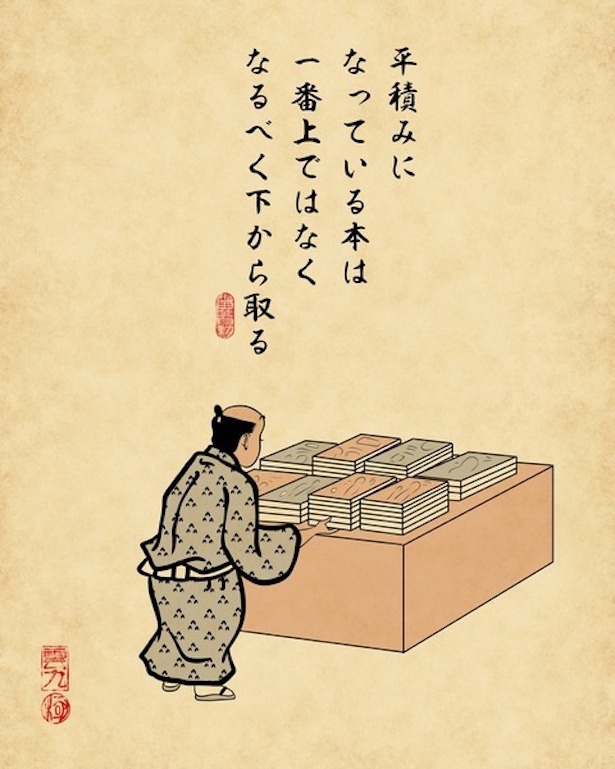 平積みに
なっている本は
一番上ではなく
なるべく下から取る